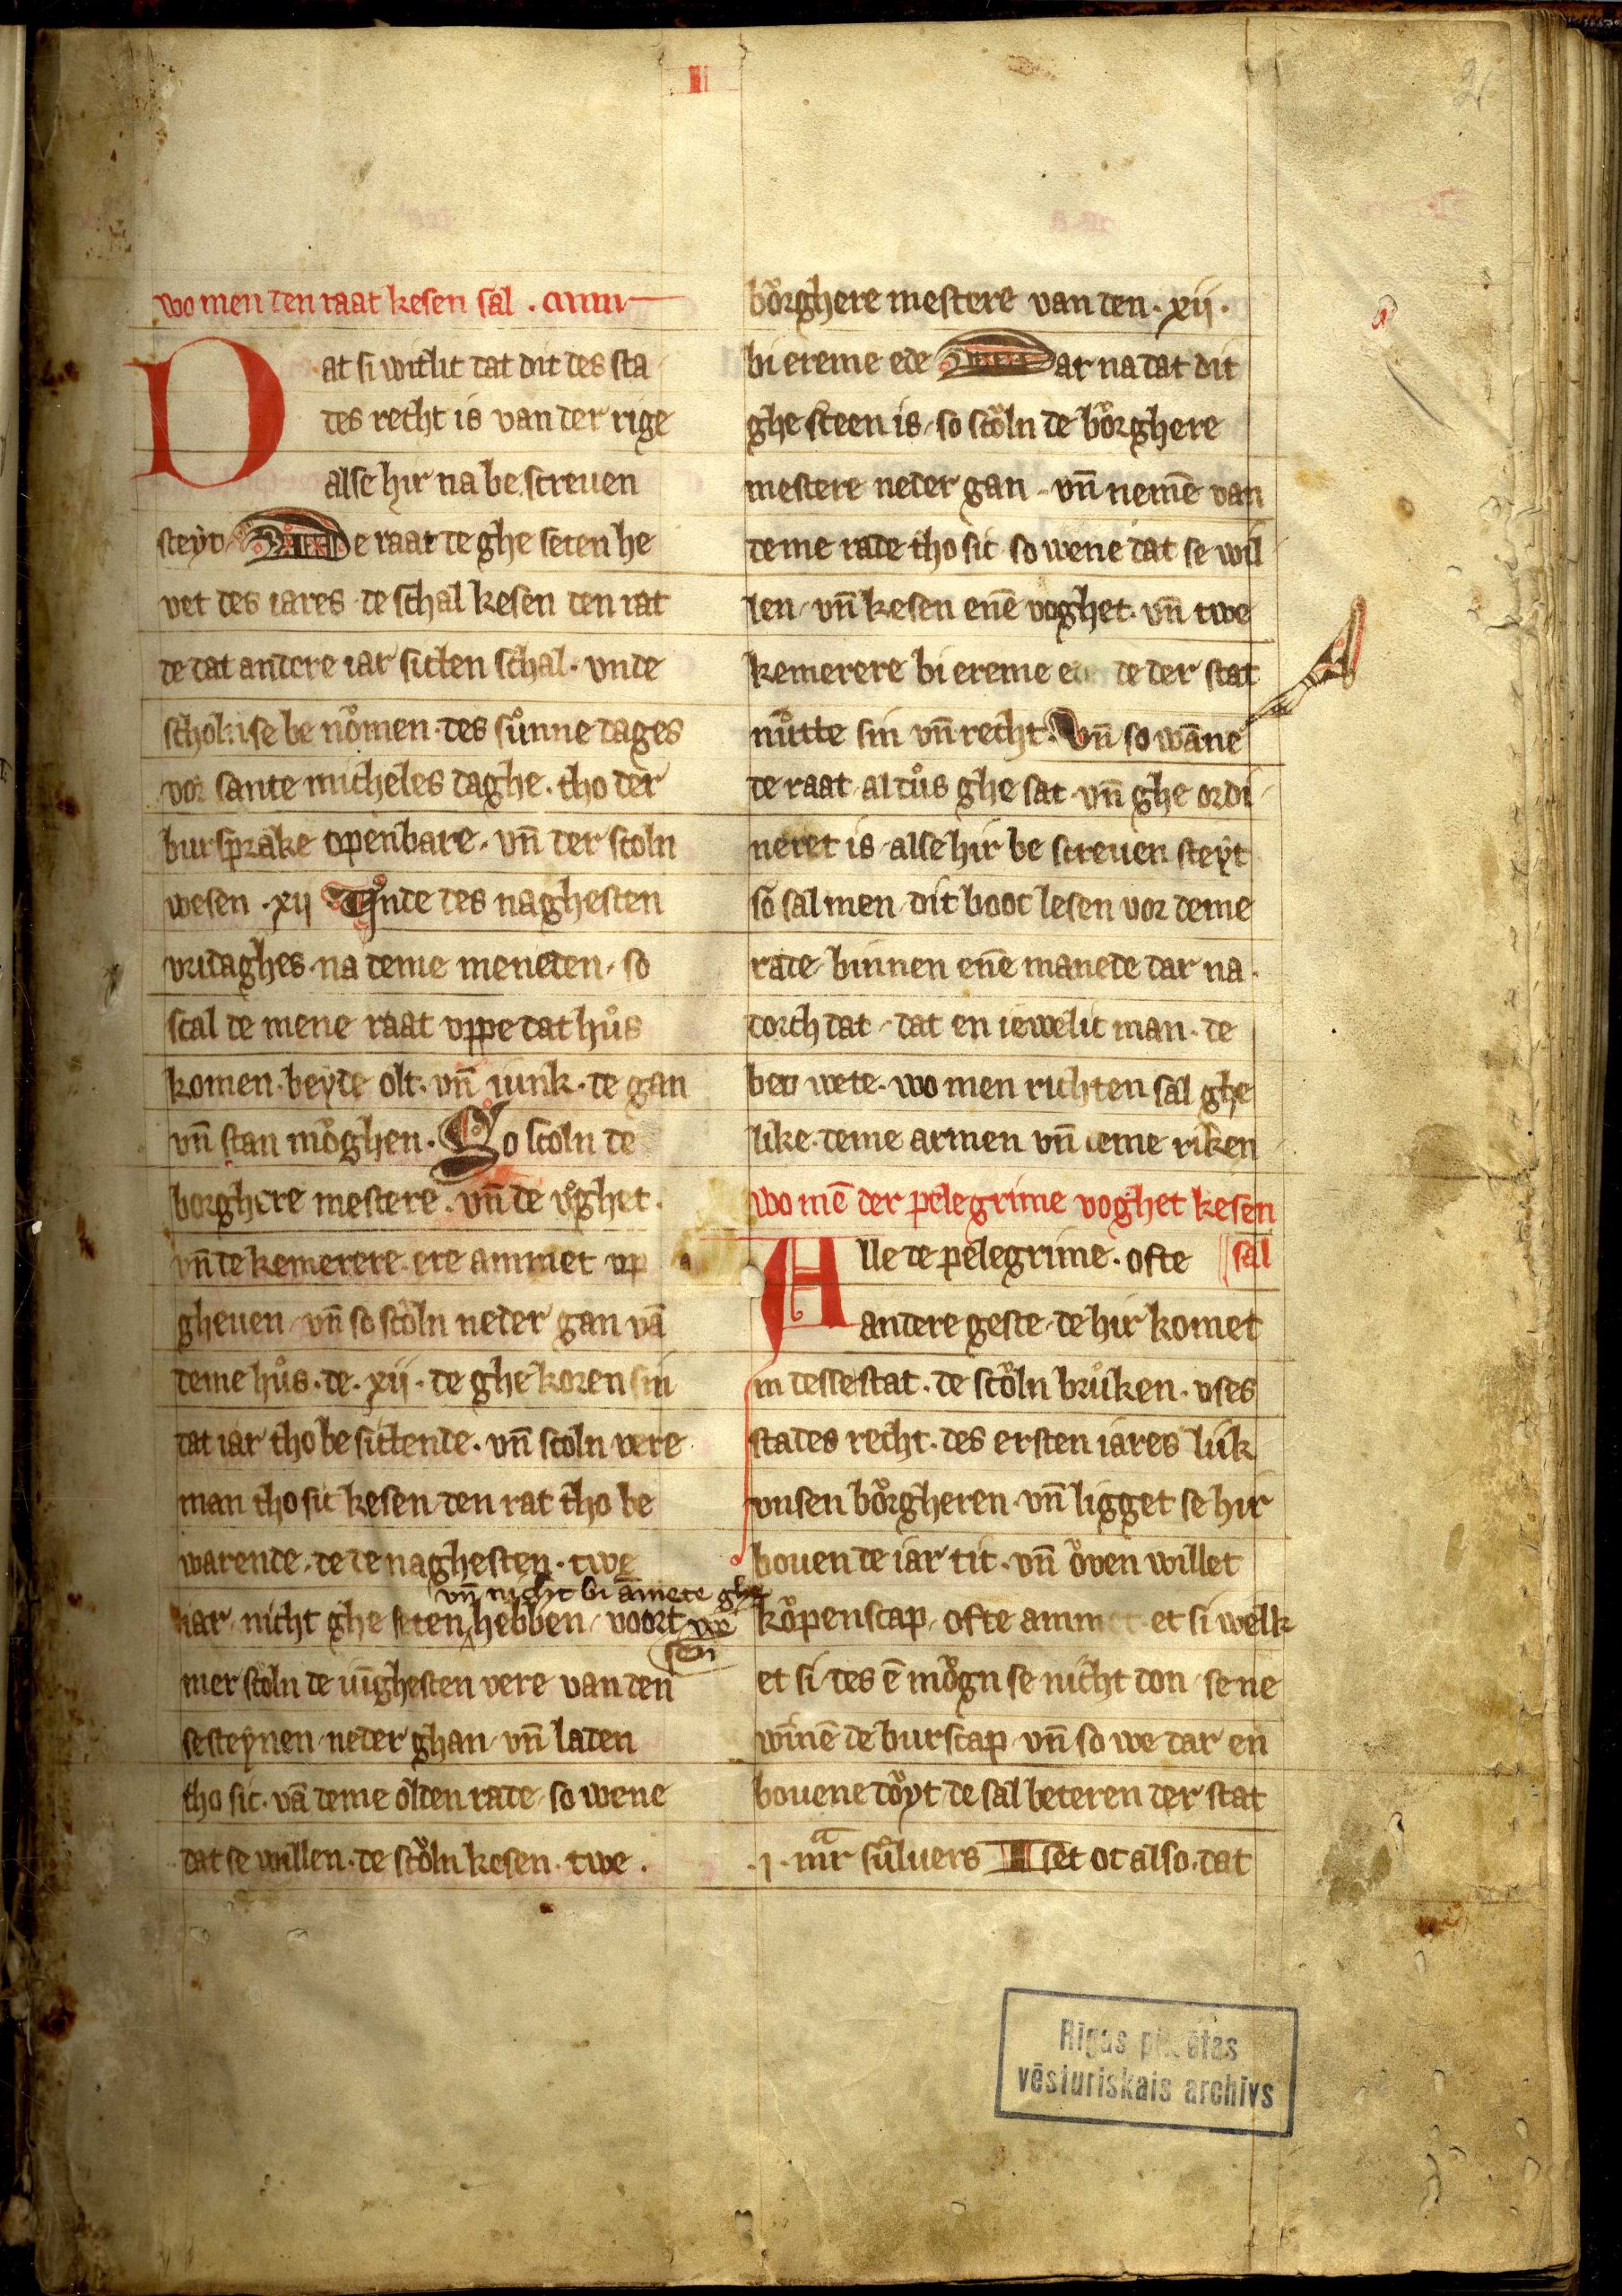 II
2
wo men den raat kesen sal .
Dat si witlic dat dit des sta
des recht is van der rige
alse hir na be screuen
steyt De raat de ghe seten he
vet des iares · de schal kesen den rat
de dat andere iar sitten schal · vnde
scholn se be nomen · des sůnne dages
vor sante micheles daghe · tho der
bursprake openbare · vn̄ der scoln
wesen · xij Vnde des naghesten
vridaghes · na deme meneden · so
scal de mene raat vppe dat hůs
komen · beyde olt · vn̄ iunk · de gan
vn̄ stan mŏghen · So scoln de
borghere mestere · vn̄ de voghet ·
vn̄ de kemerere · ere ammet vp
gheuen · vn̄ so scŏln neder gan vā
deme hůs · de · xij · de ghe koren sin
dat iar tho be sittende · vn̄ scoln vere
man tho sic kesen den rat tho be
warende · de de naghesten · twe
vn̄ nicht bi āmete ghe
iar · nicht ghe seten hebben · voort we
sen
mer scoln de iūghesten vere van den
sesteynen · neder ghan · vn̄ laden
tho sic · vā deme olden rade · so wene
dat se willen · de scŏln kesen · twe ·
bŏrghere mestere van den · xij ·
bi ereme ede Dar na dat dit
ghe screen is · so scŏln de bŏrghere
mestere neder gan · vn̄ nemē van
deme rade tho sic · so wene dat se wil
len · vn̄ kesen enē voghet · vn̄ twe
kemerere bi ereme de der stat
nůtte sin vn̄ recht · Vn̄ so wāne
de raat al důs ghe sat · vn̄ ghe ordi
neret is · alse hir be screuen steyt
so sal men dit booc lesen vor deme
rade · binnen enē manede dar na ·
dorch dat · dat en iewelic man · de
bet wete · wo men richten sal ghe
like · deme armen vn̄ deme riken
wo mē der pelegrime voghet kesen
sal
Alle de pelegrime · ofte
andere geste · de hir komet
in desse stat · de scŏln brůken · vses
stades recht · des ersten iares lik
vnsen bŏrgheren · vn̄ ligget se hir
bouen de iar tit · vn̄ ŏven willet
kŏpenscap · ofte ammet · et si welk
et si · des ē mŏgn se nicht don · se ne
winē de burscap · vn̄ so we dar en
bouene dŏyt · de sal beteren der stat
· j · mr̄ sůluers Is et oc also · dat
Rīgas pilsētas
vēsturiskais archīvs